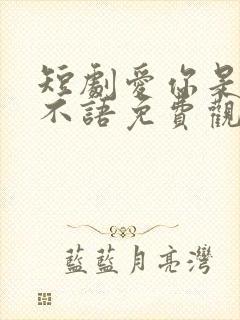 短劇愛你是
不語免費觀
藍藍月亮灣